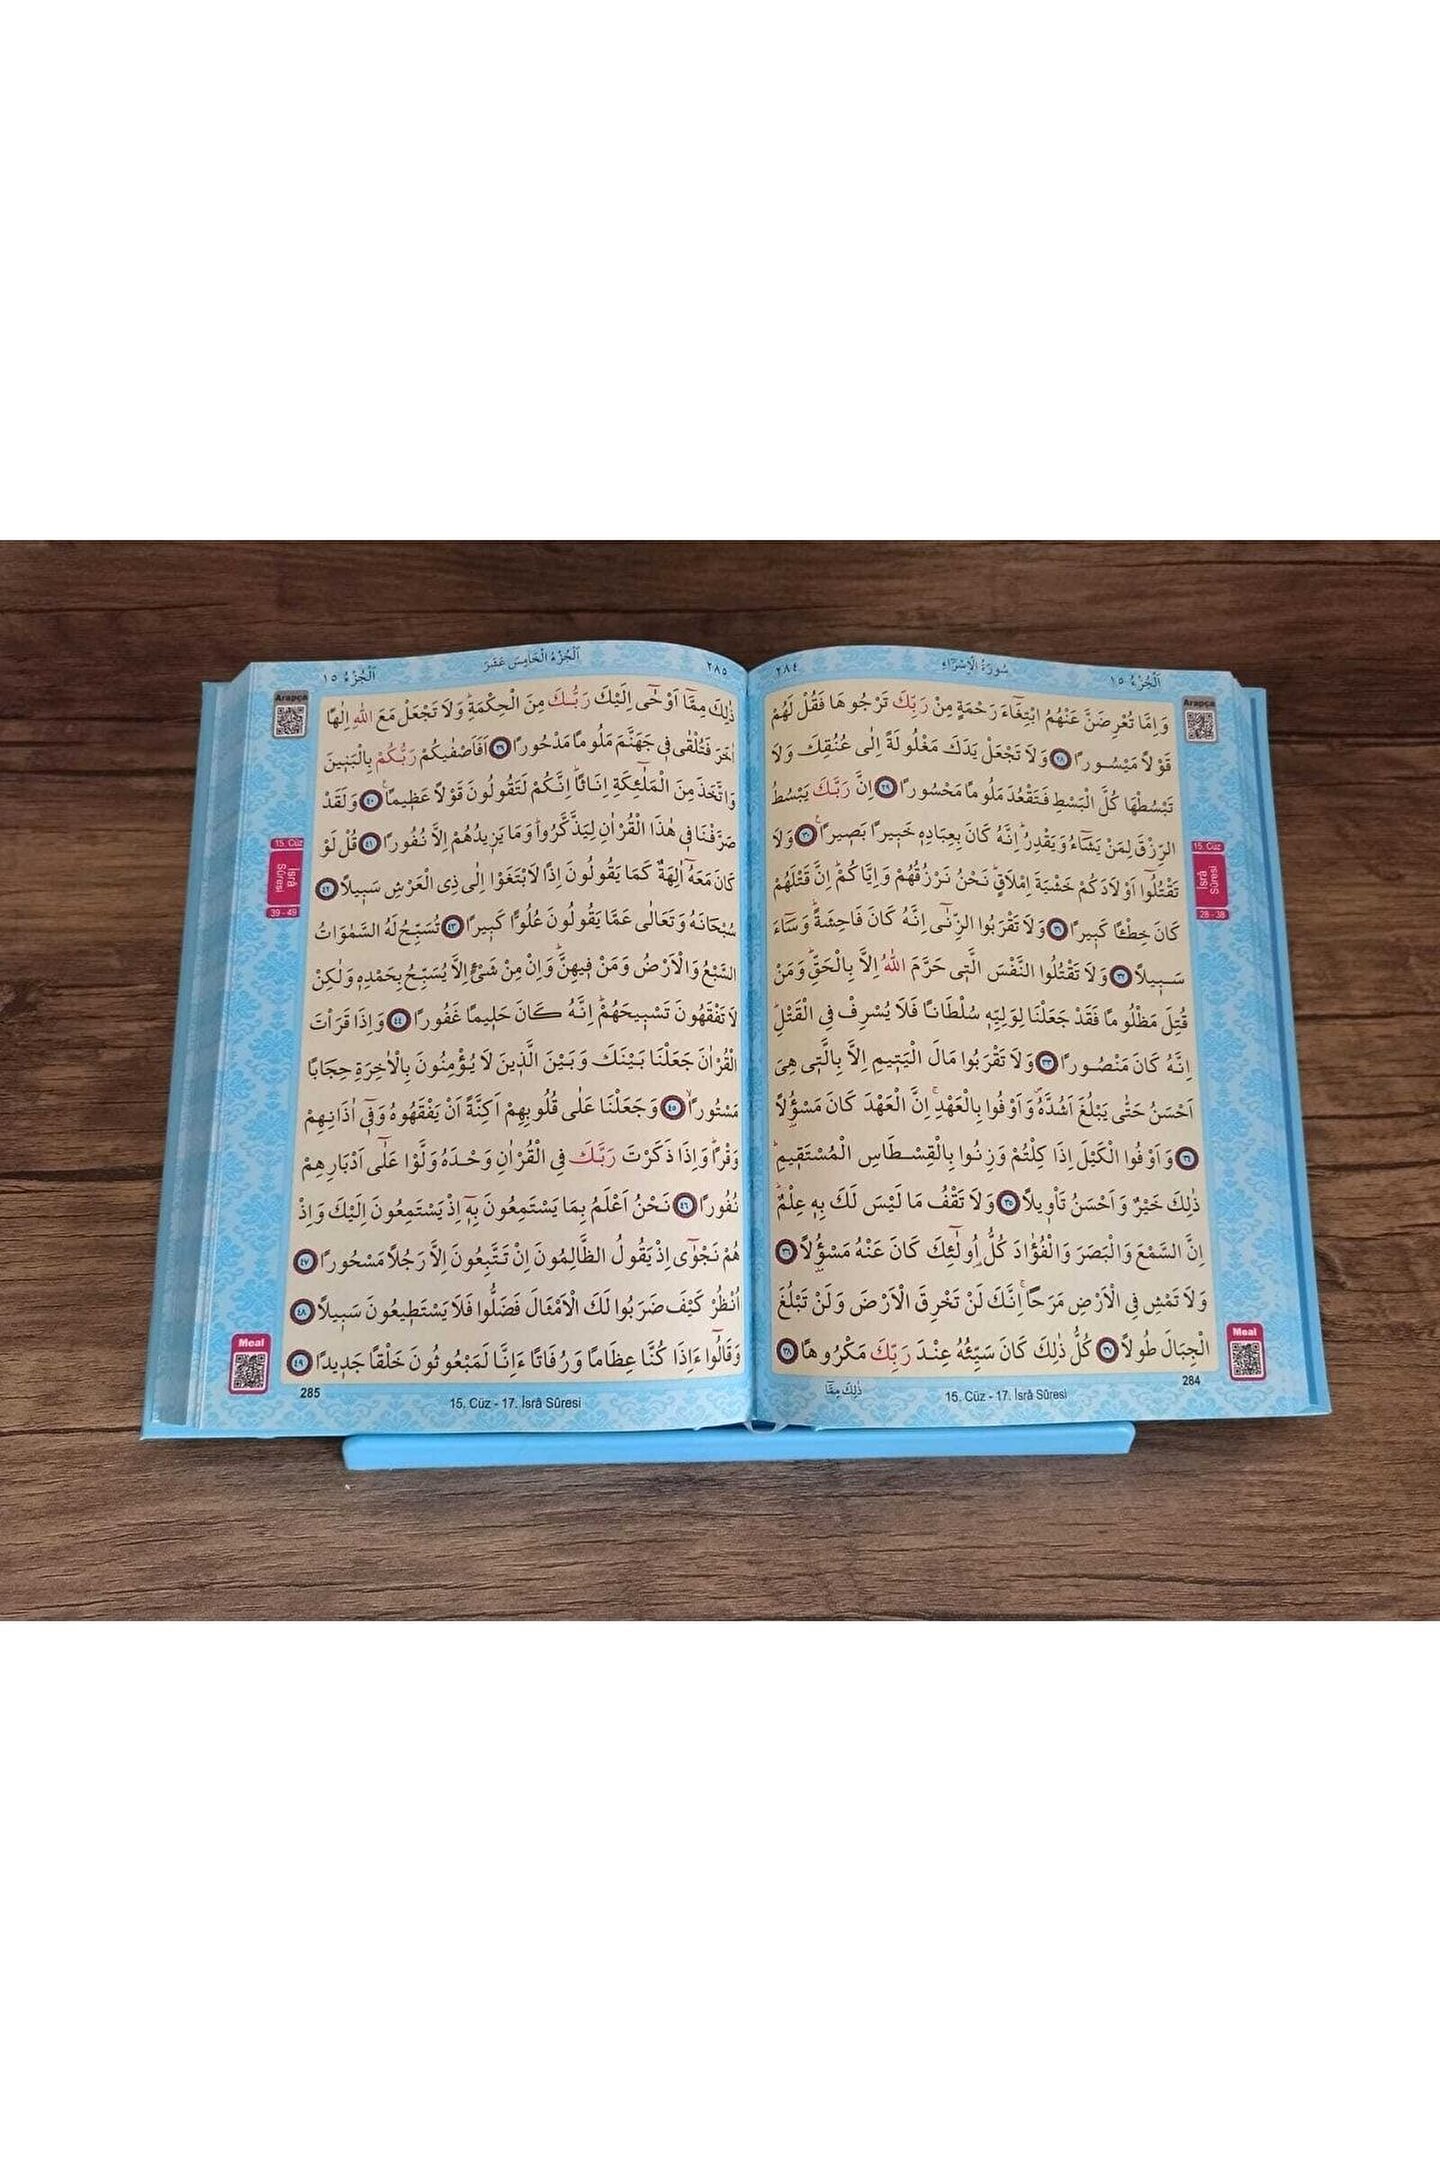 اَلْجُزْءُ ١٥
سُورَةُ الْاِسْرَٓاءِ
٢٨٤
وَاِمَّا تُعْرِضَنَّ عَنْهُمُ ابْتِغَٓاءَ رَحْمَةٍ مِنْ رَبِّكَ تَرْجُوهَا فَقُلْ لَهُمْ
قَوْلًا مَيْسُورًا ٢٨ وَلَا تَجْعَلْ يَدَكَ مَغْلُولَةً اِلٰى عُنُقِكَ وَلَا
تَبْسُطْهَا كُلَّ الْبَسْطِ فَتَقْعُدَ مَلُومًا مَحْسُورًا ٢٩ اِنَّ رَبَّكَ يَبْسُطُ
الرِّزْقَ لِمَنْ يَشَٓاءُ وَيَقْدِرُۜ اِنَّهُ كَانَ بِعِبَادِه۪ خَب۪يرًا بَص۪يرًا۟ ٣٠ وَلَا
تَقْتُلُٓوا اَوْلَادَكُمْ خَشْيَةَ اِمْلَاقٍۜ نَحْنُ نَرْزُقُهُمْ وَاِيَّاكُمْۜ اِنَّ قَتْلَهُمْ
كَانَ خِطْـًٔا كَب۪يرًا ٣١ وَلَا تَقْرَبُوا الزِّنٰٓى اِنَّهُ كَانَ فَاحِشَةًۜ وَسَٓاءَ
سَب۪يلًا ٣٢ وَلَا تَقْتُلُوا النَّفْسَ الَّت۪ي حَرَّمَ اللّٰهُ اِلَّا بِالْحَقِّۜ وَمَنْ
قُتِلَ مَظْلُومًا فَقَدْ جَعَلْنَا لِوَلِيِّه۪ سُلْطَانًا فَلَا يُسْرِفْ فِي الْقَتْلِۜ
اِنَّهُ كَانَ مَنْصُورًا ٣٣ وَلَا تَقْرَبُوا مَالَ الْيَت۪يمِ اِلَّا بِالَّت۪ي هِيَ
اَحْسَنُ حَتّٰى يَبْلُغَ اَشُدَّهُۖ وَاَوْفُوا بِالْعَهْدِۚ اِنَّ الْعَهْدَ كَانَ مَسْؤُ۫لًا
٣٤ وَاَوْفُوا الْكَيْلَ اِذَا كِلْتُمْ وَزِنُوا بِالْقِسْطَاسِ الْمُسْتَق۪يمِۜ
ذٰلِكَ خَيْرٌ وَاَحْسَنُ تَأْو۪يلًا ٣٥ وَلَا تَقْفُ مَا لَيْسَ لَكَ بِه۪ عِلْمٌۜ
اِنَّ السَّمْعَ وَالْبَصَرَ وَالْفُؤٰادَ كُلُّ اُو۬لٰٓئِكَ كَانَ عَنْهُ مَسْؤُ۫لًا ٣٦
وَلَا تَمْشِ فِي الْاَرْضِ مَرَحًاۚ اِنَّكَ لَنْ تَخْرِقَ الْاَرْضَ وَلَنْ تَبْلُغَ
الْجِبَالَ طُولًا ٣٧ كُلُّ ذٰلِكَ كَانَ سَيِّئُهُ عِنْدَ رَبِّكَ مَكْرُوهًا ٣٨
ذٰلِكَ مِمَّٓا
15. Cüz - 17. İsrâ Sûresi
284
Arapça
15. Cüz
İsrâ
Sûresi
28 - 38
Meal
٢٨٥
اَلْجُزْءُ الْخَامِسَ عَشَرَ
اَلْجُزْءُ ١٥
ذٰلِكَ مِمَّٓا اَوْحٰٓى اِلَيْكَ رَبُّكَ مِنَ الْحِكْمَةِۜ وَلَا تَجْعَلْ مَعَ اللّٰهِ اِلٰهًا
اٰخَرَ فَتُلْقٰى ف۪ي جَهَنَّمَ مَلُومًا مَدْحُورًا ٣٩ اَفَاَصْفٰيكُمْ رَبُّكُمْ بِالْبَن۪ينَ
وَاتَّخَذَ مِنَ الْمَلٰٓئِكَةِ اِنَاثًاۜ اِنَّكُمْ لَتَقُولُونَ قَوْلًا عَظ۪يمًا۟ ٤٠ وَلَقَدْ
صَرَّفْنَا ف۪ي هٰذَا الْقُرْاٰنِ لِيَذَّكَّرُواۜ وَمَا يَز۪يدُهُمْ اِلَّا نُفُورًا ٤١ قُلْ لَوْ
كَانَ مَعَهُٓ اٰلِهَةٌ كَمَا يَقُولُونَ اِذًا لَابْتَغَوْا اِلٰى ذِي الْعَرْشِ سَب۪يلًا ٤٢
سُبْحَانَهُ وَتَعَالٰى عَمَّا يَقُولُونَ عُلُوًّا كَب۪يرًا ٤٣ تُسَبِّحُ لَهُ السَّمٰوَاتُ
السَّبْعُ وَالْاَرْضُ وَمَنْ ف۪يهِنَّۜ وَاِنْ مِنْ شَيْءٍ اِلَّا يُسَبِّحُ بِحَمْدِه۪ وَلٰكِنْ
لَا تَفْقَهُونَ تَسْب۪يحَهُمْۜ اِنَّهُ كَانَ حَل۪يمًا غَفُورًا ٤٤ وَاِذَا قَرَأْتَ
الْقُرْاٰنَ جَعَلْنَا بَيْنَكَ وَبَيْنَ الَّذ۪ينَ لَا يُؤْمِنُونَ بِالْاٰخِرَةِ حِجَابًا
مَسْتُورًاۙ ٤٥ وَجَعَلْنَا عَلٰى قُلُوبِهِمْ اَكِنَّةً اَنْ يَفْقَهُوهُ وَف۪ٓي اٰذَانِهِمْ
وَقْرًاۜ وَاِذَا ذَكَرْتَ رَبَّكَ فِي الْقُرْاٰنِ وَحْدَهُ وَلَّوْا عَلٰٓى اَدْبَارِهِمْ
نُفُورًا ٤٦ نَحْنُ اَعْلَمُ بِمَا يَسْتَمِعُونَ بِه۪ٓ اِذْ يَسْتَمِعُونَ اِلَيْكَ وَاِذْ
هُمْ نَجْوٰٓى اِذْ يَقُولُ الظَّالِمُونَ اِنْ تَتَّبِعُونَ اِلَّا رَجُلًا مَسْحُورًا ٤٧
اُنْظُرْ كَيْفَ ضَرَبُوا لَكَ الْاَمْثَالَ فَضَلُّوا فَلَا يَسْتَط۪يعُونَ سَب۪يلًا ٤٨
وَقَالُٓوا ءَاِذَا كُنَّا عِظَامًا وَرُفَاتًا ءَاِنَّا لَمَبْعُوثُونَ خَلْقًا جَد۪يدًا ٤٩
285
15. Cüz - 17. İsrâ Sûresi
Arapça
15. Cüz
İsrâ
Sûresi
39 - 49
Meal